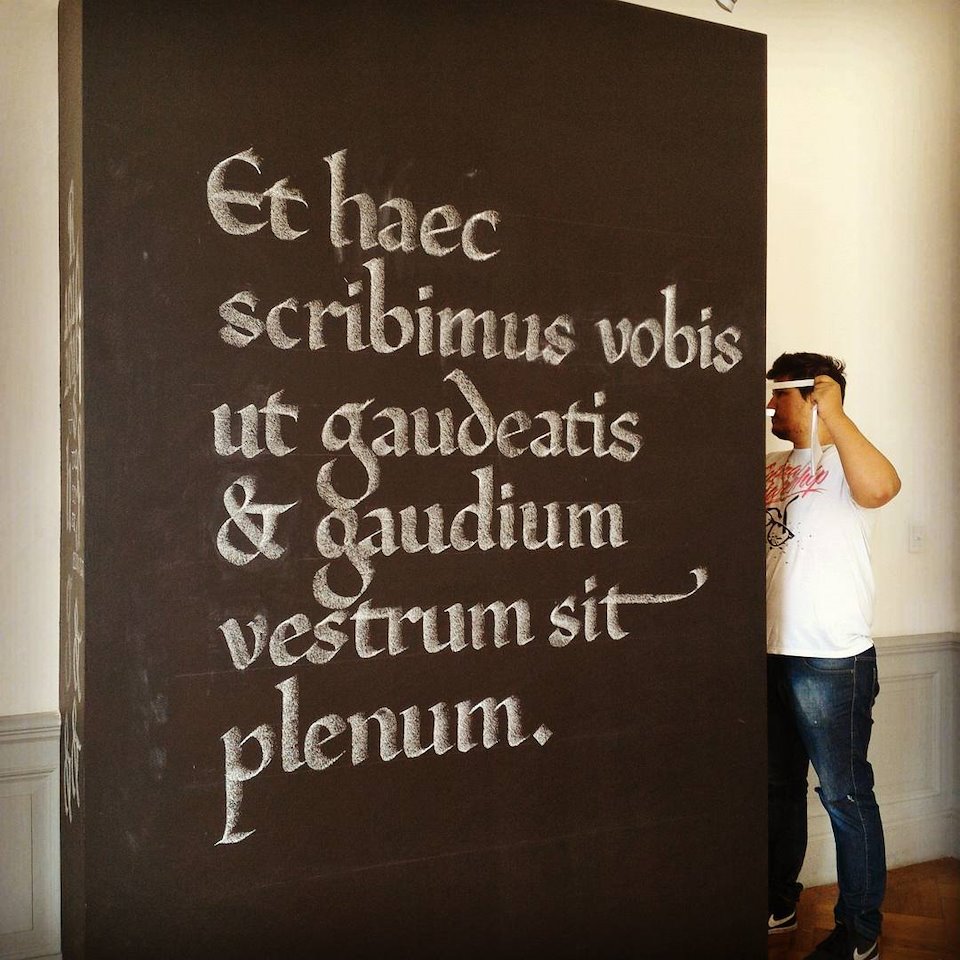 Et haec
scribimus vobis
ut gaudeatis
& gaudium
vestrum sit
plenum.